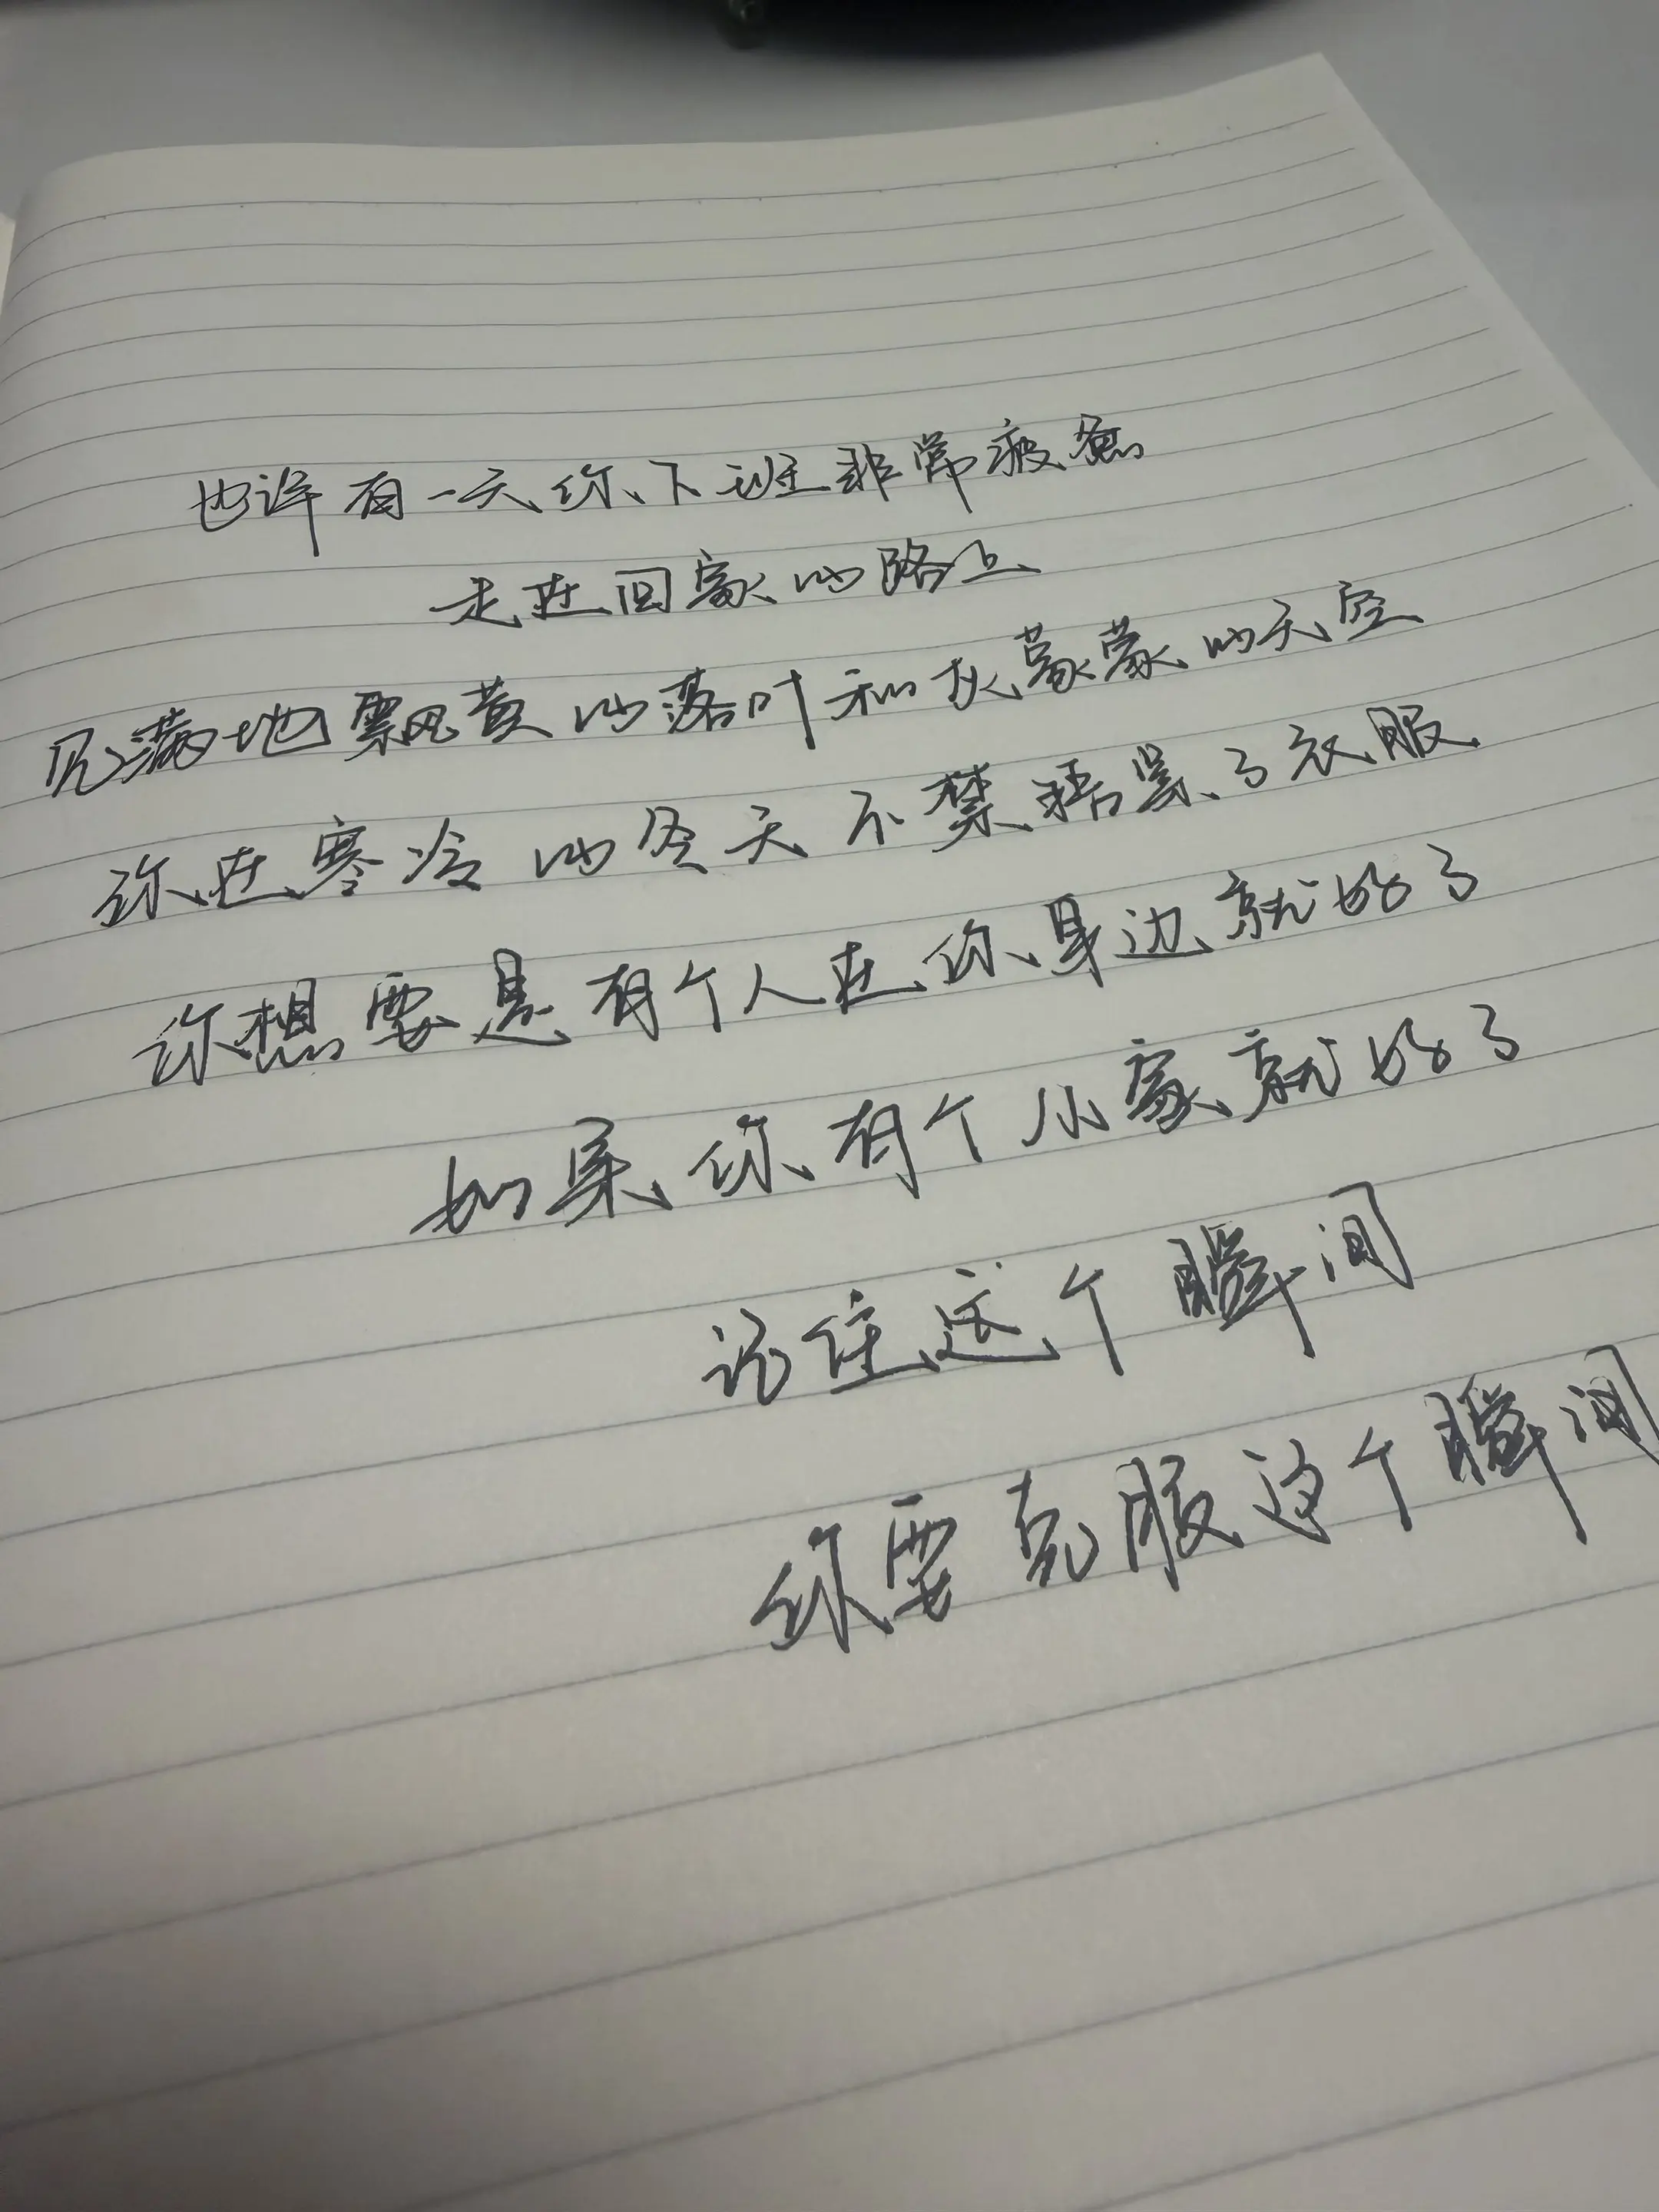 也许有一天你下班非常疲惫
走在回家的路上
见满地飘黄的落叶和灰蒙蒙的天空
你在寒冷的冬天不禁捂紧了衣服
你想要是有个人在你身边就好了
如果你有个小家就好了
记住这个瞬间
你要克服这个瞬间